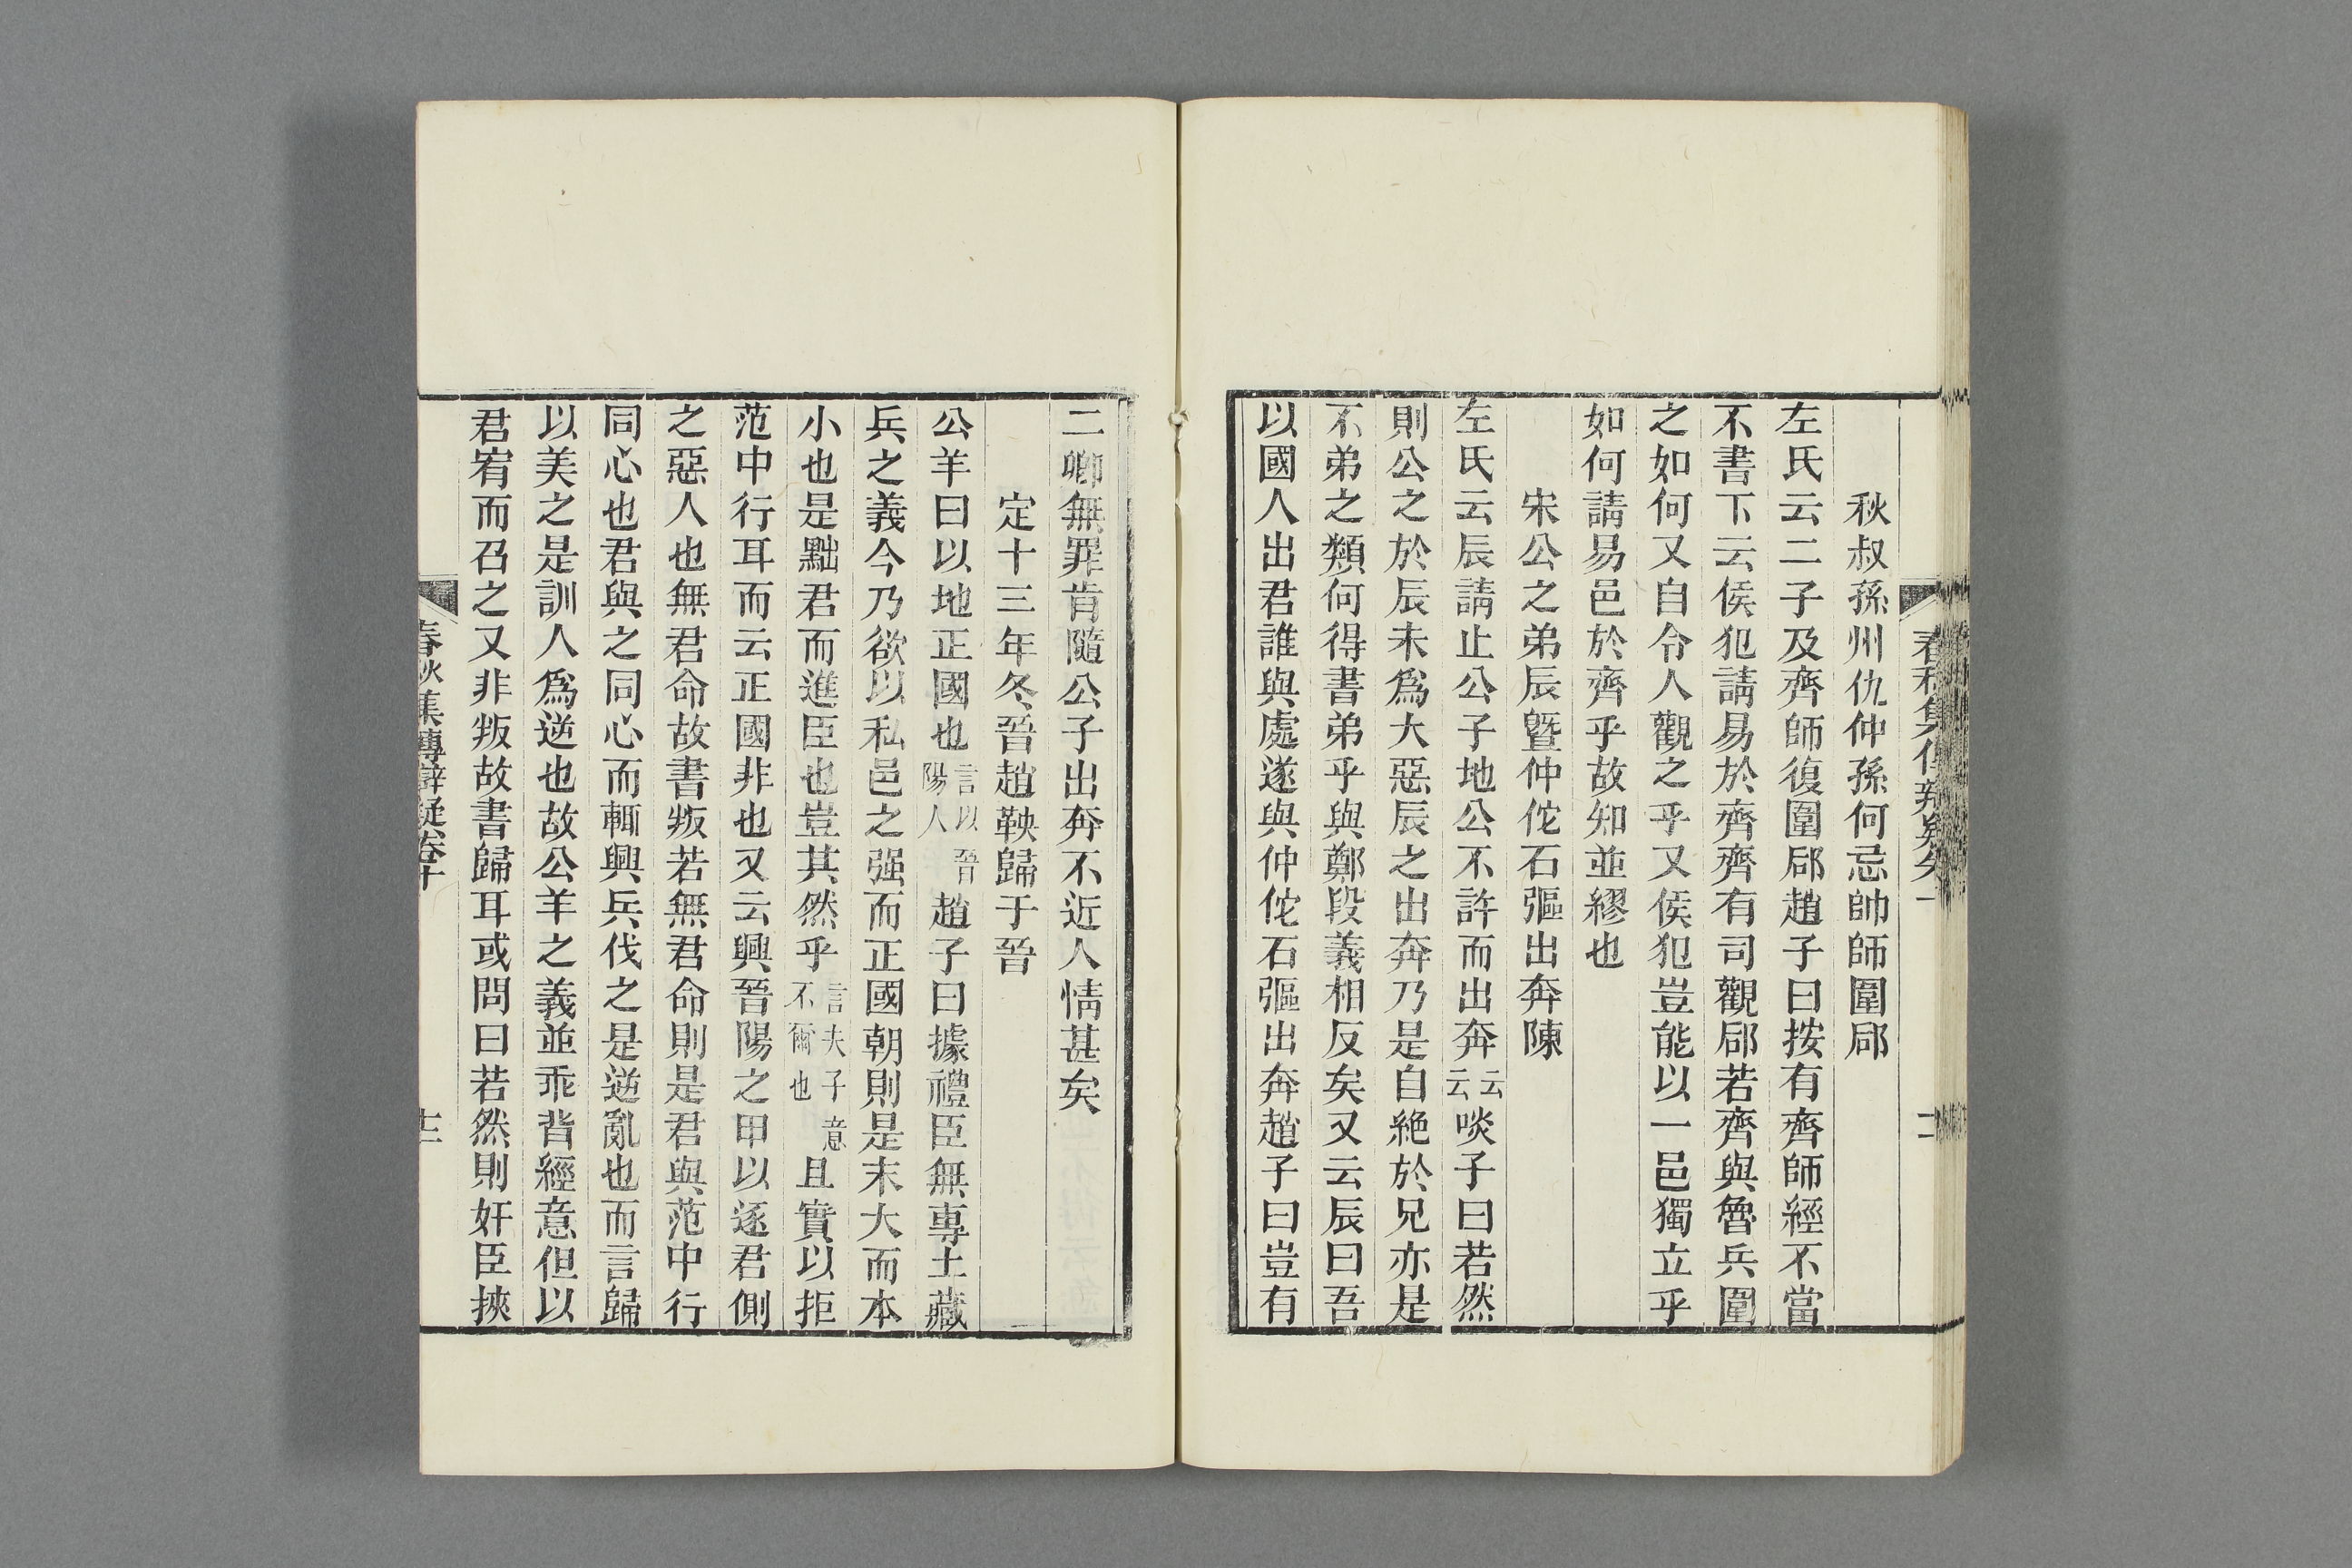 秋叔孫州仇仲孫何忌帥師圍郈
左氏云二子及齊師復圍郈趙子曰按有齊師經不當
不書下云侯犯請易於齊齊有司觀郈若齊與魯兵圍
之如何又自令人觀之乎又侯犯豈能以一邑獨立乎
如何請易邑於齊乎故知並繆也
宋公之弟辰曁仲佗石彄出奔陳
左氏云辰請止公子地公不許而出奔云云啖子曰若然
則公之於辰未爲大惡辰之出奔乃是自絶於兄亦是
不弟之類何得書弟乎與鄭段義相反矣又云辰曰吾
以國人出君誰與處遂與仲佗石彄出奔趙子曰豈有
二卿無罪肯隨公子出奔不近人情甚矣
定十三年冬晉趙鞅歸于晉
公羊曰以地正國也言以晉陽人趙子曰據禮臣無專土藏
兵之義今乃欲以私邑之强而正國朝則是末大而本
小也是黜君而進臣也豈其然乎言夫子意不爾也且實以拒
范中行耳而云正國非也又云興晉陽之甲以逐君側
之惡人也無君命故書叛若無君命則是君與范中行
同心也君與之同心而輒興兵伐之是逆亂也而言歸
以美之是訓人爲逆也故公羊之義並乖背經意但以
君宥而召之又非叛故書歸耳或問曰若然則奸臣挾
春秋集傳辯疑卷十
十二